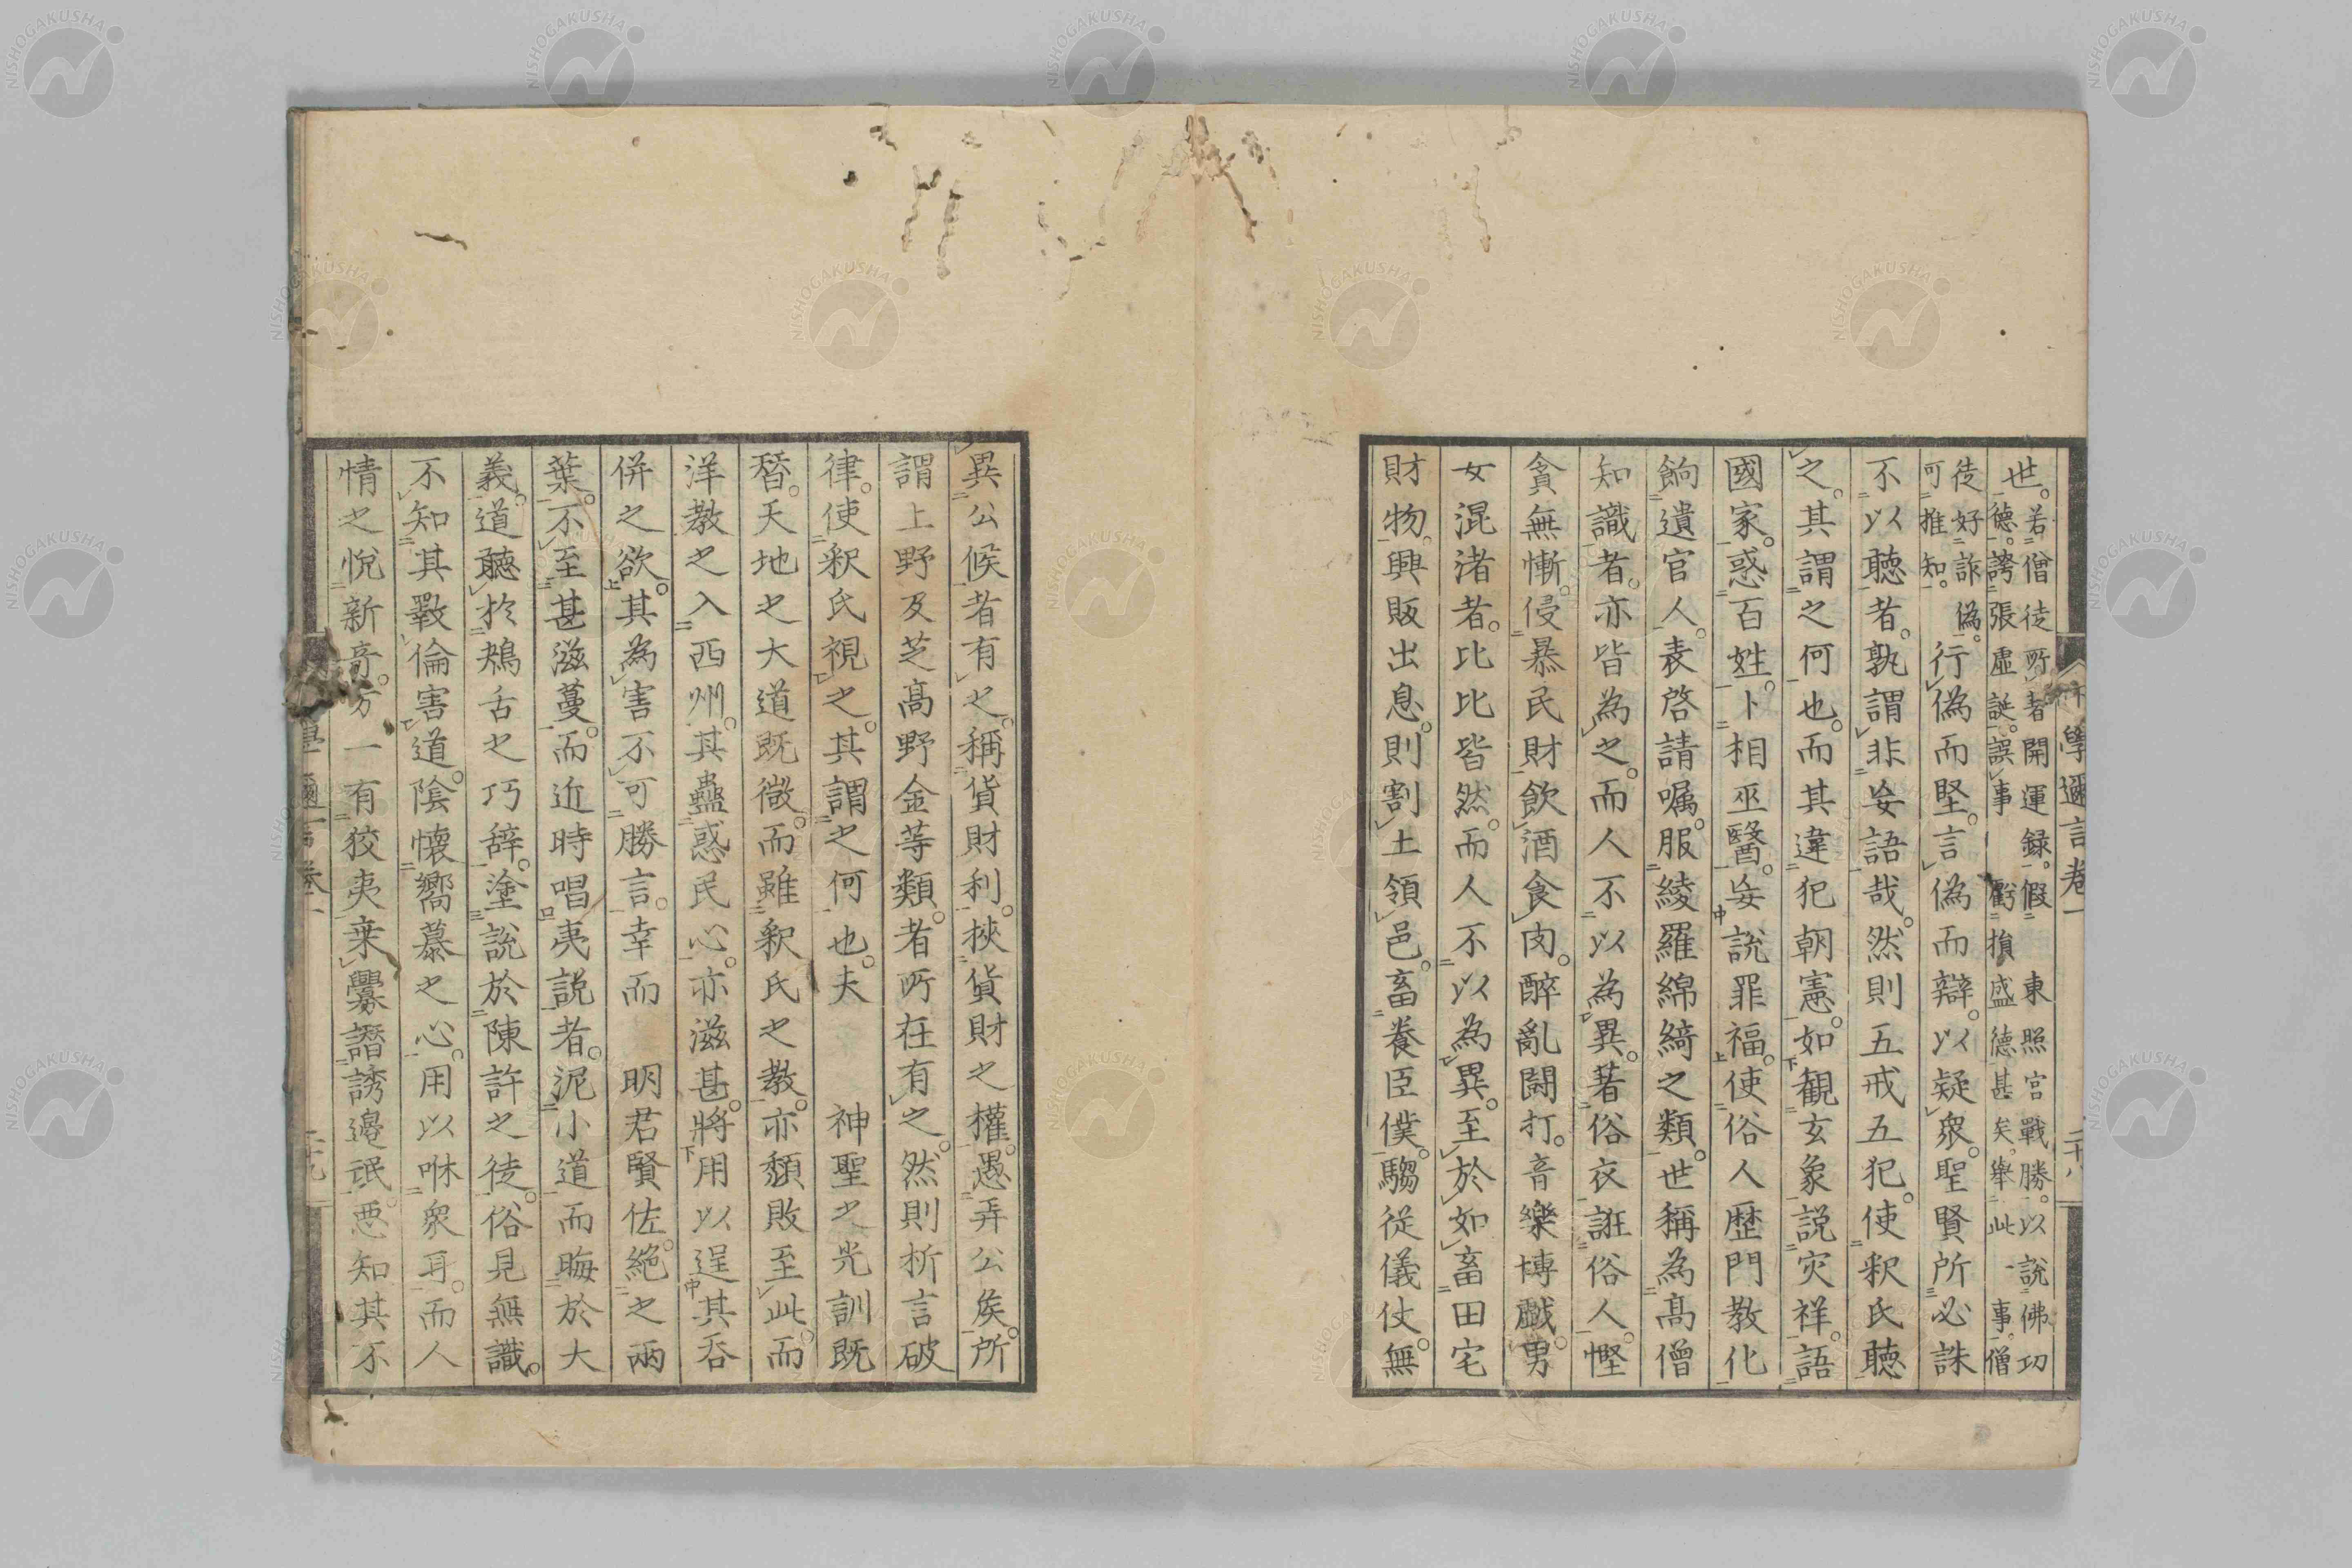 世。若僧徒所著開運録。假東照宮戰勝。以說佛功
德。誇張虛誕。誤事虧損盛德甚矣。擧此一事。僧
徒好詐偽。
可推知。
行偽而堅。言偽而辯。以疑衆。聖賢所必誅
不以聽者。孰謂非妄語哉。然則五戒五犯。使釈氏聽
之。其謂之何也。而其違犯朝憲。如觀玄象說灾祥。語
國家。惑百姓。卜相巫醫。妄說罪福。使俗人歴門教化
餉遺官人。表啓請嘱。服綾羅綿綺之類。世稱為高僧
知識者。亦皆為之。而人不以為異。著俗衣誑俗人。慳
貪無慚。侵暴民財飲酒食肉。醉亂闘打。音樂博戯。男
女混渚者。比比皆然。而人不以為異。至於如畜田宅
財物。興販出息。則割土領邑。畜養臣僕。騶從儀仗。無
學邇言卷一
二十八
異公候者有之。稱貨財利。挾貨財之權。愚弄公矦。所
謂上野及芝高野金等類。者所在有之。然則析言破
律。使釈氏視之。其謂之何也。夫 神聖之光訓既
替。天地之大道既微。而雖釈氏之教。亦頽敗至此。而
洋教之入西州。其蠱惑民心。亦滋甚。將用以逞其呑
併之欲。其為害不可勝言。幸而 明君賢佐。絶之兩
葉。不至甚滋蔓。而近時唱夷説者。泥小道而晦於大
義。道聽於鴂舌之巧辞。塗說於陳許之徒。俗見無識。
不知其斁倫害道。陰懷嚮慕之心。用以咻衆耳。而人
情之悅新奇。万一有狡夷乗釁譖誘邉氓。悪知其不